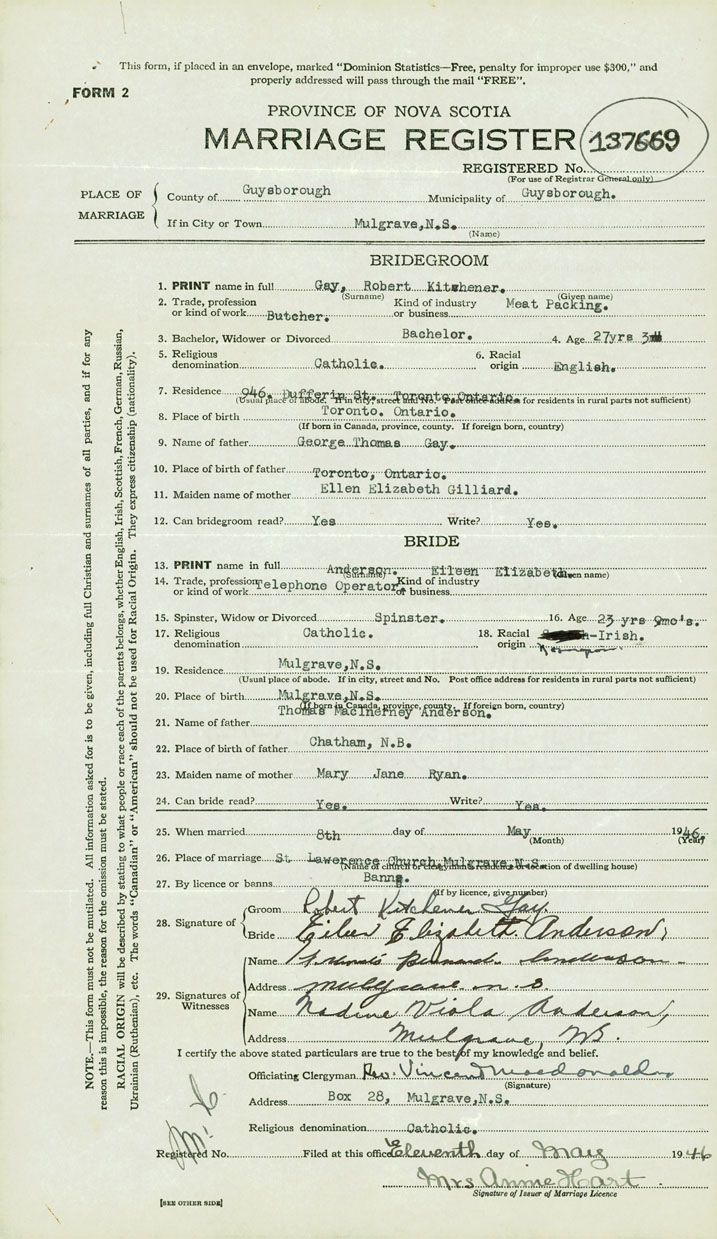 This form, if placed in an envelope, marked "Dominion Statistics—Free, penalty for improper use $300," and
properly addressed will pass through the mail "FREE".
FORM 2
PROVINCE OF NOVA SCOTIA
MARRIAGE REGISTER 137669
REGISTERED No.
(For use of Registrar General only)
PLACE OF MARRIAGE
County of Guysborough Municipality of Guysborough.
If in City or Town Mulgrave, N.S.
(Name)
BRIDEGROOM
1. PRINT name in full Gay, Robert Kitchener.
(Surname) (Given name)
2. Trade, profession or kind of work Butcher. Kind of industry or business Meat Packing.
3. Bachelor, Widower or Divorced Bachelor. 4. Age 27yrs
5. Religious denomination Catholic. 6. Racial origin English.
7. Residence 946. Dufferin St. Toronto Ontario.
(Usual place of abode. If in city, street and No. Post office address for residents in rural parts not sufficient)
8. Place of birth Toronto. Ontario.
(If born in Canada, province, county. If foreign born, country)
9. Name of father George Thomas Gay.
10. Place of birth of father Toronto, Ontario.
11. Maiden name of mother Ellen Elizabeth Gilliard.
12. Can bridegroom read? Yes Write? Yes.
BRIDE
13. PRINT name in full Anderson. Eileen Elizabeth.
(Surname) (Given name)
14. Trade, profession or kind of work Telephone Operator Kind of industry or business
15. Spinster, Widow or Divorced Spinster. 16. Age 23 yrs 9mo's.
17. Religious denomination Catholic. 18. Racial origin -Irish.
19. Residence Mulgrave, N.S.
(Usual place of abode. If in city, street and No. Post office address for residents in rural parts not sufficient)
20. Place of birth Mulgrave, N.S.
(If born in Canada, province, county. If foreign born, country)
21. Name of father Thomas MacInerney Anderson.
22. Place of birth of father Chatham, N.B.
23. Maiden name of mother Mary Jane Ryan.
24. Can bride read? Yes. Write? Yes.
25. When married 8th day of May 1946.
(Month) (Year)
26. Place of marriage St Lawerence Church, Mulgrave, N.S.
(Name of church or clergyman's residence or location of dwelling house)
27. By licence or banns Banns.
(If by licence, give number)
28. Signature of
Groom Robert Kitchener Gay.
Bride Eileen Elizabeth Anderson,
29. Signatures of Witnesses
Name Bernard Anderson
Address Mulgrave N. S.
Name Nadine Viola Anderson,
Address Mulgrave, NS.
I certify the above stated particulars are true to the best of my knowledge and belief.
Officiating Clergyman Rev. Vincent Macdonald
(Signature)
Address Box 28, Mulgrave, N.S.
Religious denomination Catholic.
Registered No. Filed at this office Eleventh day of May 1946
Mrs Annie Hart
Signature of Issuer of Marriage Licence
[SEE OTHER SIDE]
NOTE.—This form must not be mutilated. All information asked for is to be given, including full Christian and surnames of all parties, and if for any
reason this is impossible, the reason for the omission must be stated.
RACIAL ORIGIN will be described by stating to what people or race each of the parents belongs, whether English, Irish, Scottish, French, German, Russian,
Ukrainian (Ruthenian), etc. The words "Canadian" or "American" should not be used for Racial Origin. They express citizenship (nationality).